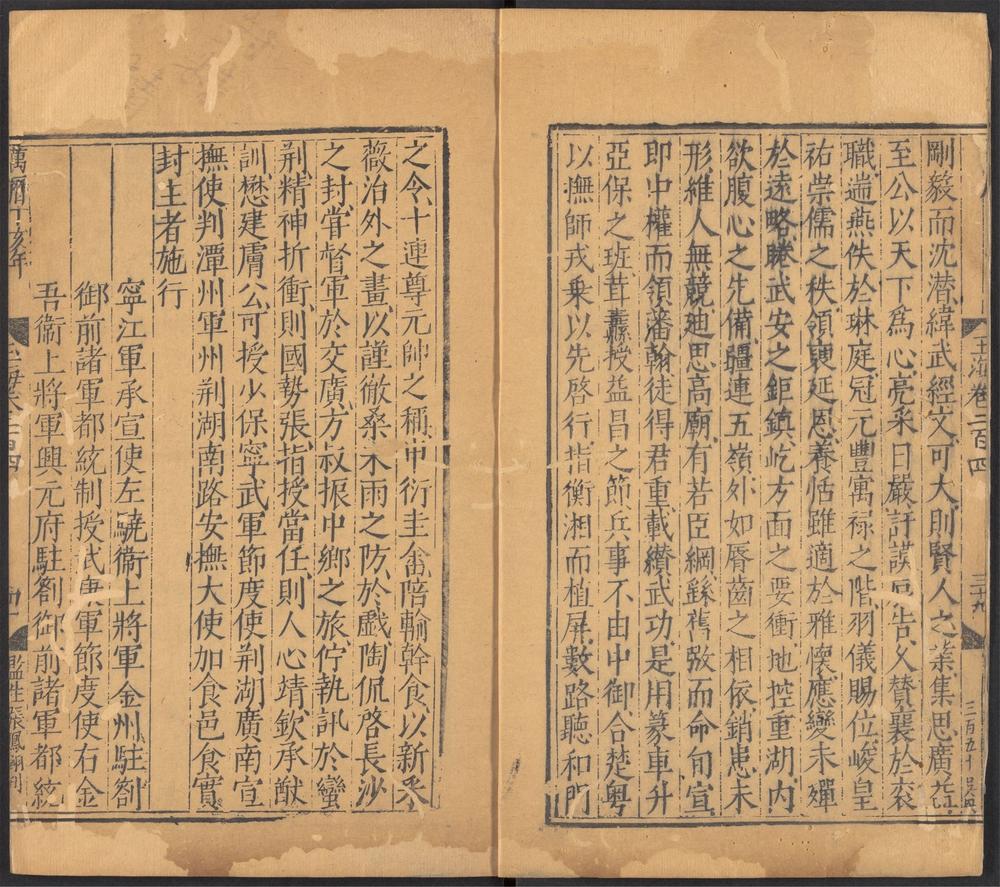 玉海卷二百四
三十九
三百五十
剛毅而沈潜緯武經文可大則賢人之業集思廣益
至公以天下爲心亮采日嚴訏謨辰告乂賛襄於衮
職遄燕佚於琳庭冠元豐寓禄之階羽儀賜位峻皇
祐崇儒之秩領袖延恩養恬雖適於雅懷應變未殫
於遠略睠武安之鉅鎮屹方面之要衝地控重湖内
欲腹心之先備疆連五嶺外如脣齒之相依銷患未
形維人無競廸思高廟有若臣綱繇舊弼而命旬宣
即中權而領藩翰徒得君重載纘武功是用篆車升
亞保之班茸纛授益昌之節兵事不由中御合楚粤
以撫師戎乗以先啓行指衡湘而植屏數路聽和門
之令十連尊元帥之稱申衍圭畬陪輸幹食以新采
薇治外之畫以謹徹桑未雨之防於戲陶侃啓長沙
之封甞督軍於交廣方叔振中鄉之旅佇執訊於蠻
荆精神折衝則國勢張指授當任則人心靖欽承猷
訓懋建膚公可授少保寧武軍節度使荆湖廣南宣
撫使判潭州軍州荆湖南路安撫大使加食邑食實
封主者施行
寧江軍承宣使左驍衞上將軍金州駐劄
御前諸軍都統制授武康軍節度使右金
吾衞上將軍興元府駐劄御前諸軍都統
萬曆丁亥年
玉海卷二百四
四十
監生張鳳翔刊